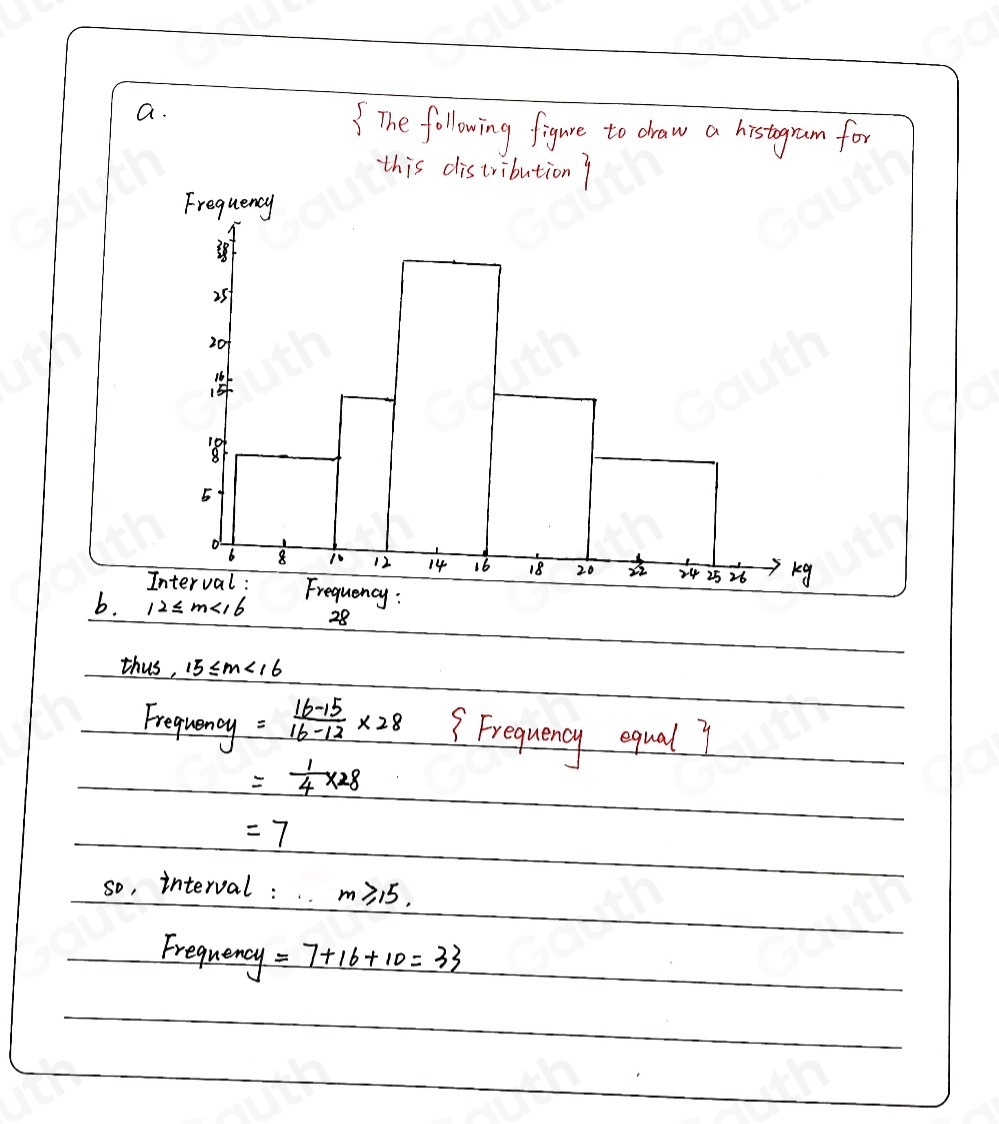 a.
{ The following figure to draw a histogram for
this distribution }
Frequency
25
20
16
15
10
8
5
0
6 8 10 12 14 16 18 20 22 24 25 26 kg
Interval: Frequency:
b. 12≤m<16 28
thus, 15≤m<16
Frequency = \frac{16-15}{16-12} × 28 { Frequency equal }
= \frac{1}{4} × 28
= 7
so, interval : .. m≥15.
Frequency = 7+16+10 = 33